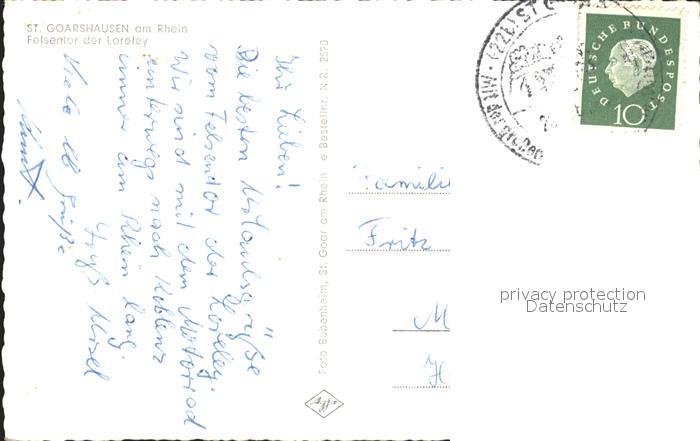 ST. GOARSHAUSEN am Rhein
Felsentor der Loreley
Ihr Lieben!
Die besten Urlaubsgrüße
vom Felsentor der Loreley.
Wir sind mit dem Motorrad
unterwegs nach Koblenz
immer am Rhein lang.
Viele lb Grüße
Foto Babenheim, St. Goar am Rhein e Bestellnr. N.R. 2590
Agfa
Familie
Fritz
M
H
(22b) ST G
DEUTSCHE BUNDESPOST
10
privacy protection
Datenschutz